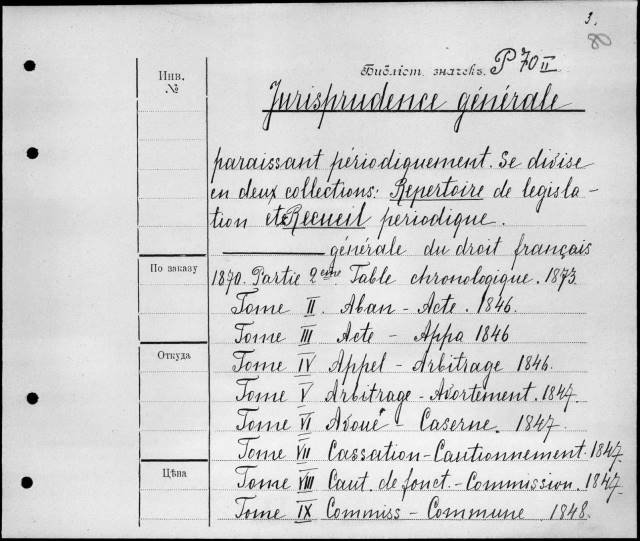 3.
80
Библіот. значекъ. P 70 II
Инв.
№
Jurisprudence générale
paraissant périodiquement. Se divise
en deux collections: Repertoire de legisla-
tion et Recueil periodique.
générale du droit français
По заказу
1870. Partie 2ème. Table chronologique. 1873.
Tome II. Aban - Acte. 1846.
Tome III Acte - Appa 1846
Откуда
Tome IV Appel - Arbitrage 1846.
Tome V Arbitrage - Avortement. 1847.
Tome VI Avoué - Caserne. 1847.
Tome VII Cassation - Cautionnement. 1847.
Цѣна
Tome VIII Caut. de fonct. - Commission. 1847.
Tome IX Commiss - Commune 1848.